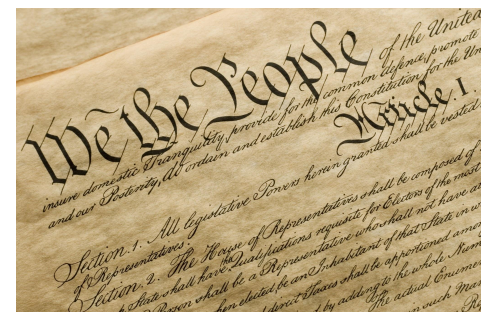 We the People of the United
insure domestic Tranquility, provide for the common defence, promote
and our Posterity, do ordain and establish this Constitution for the Un
Article. I.
Section. 1. All legislative Powers herein granted shall be vested
of Representatives.
Section. 2. The House of Representatives shall be composed of
State shall have Qualifications requisite for Electors of the most
Person shall be a Representative who shall not have
when elected, be an Inhabitant of that State in w
direct Taxes shall be apportioned amon
by adding to the whole Num
The actual Enumer
in such Man